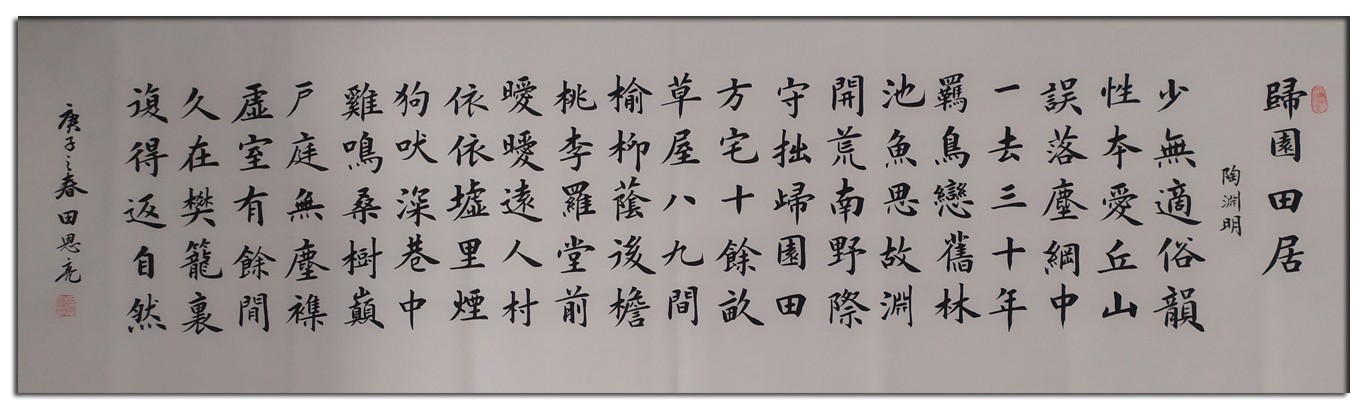 歸園田居
陶淵明
少無適俗韻
性本愛丘山
誤落塵綱中
一去三十年
羈鳥戀舊林
池魚思故淵
開荒南野際
守拙歸園田
方宅十餘畝
草屋八九間
榆柳蔭後檐
桃李羅堂前
曖曖遠人村
依依墟里煙
狗吠深巷中
雞鳴桑樹巔
戶庭無塵襍
虛室有餘間
久在樊籠裏
復得返自然
庚子之春田恩亮